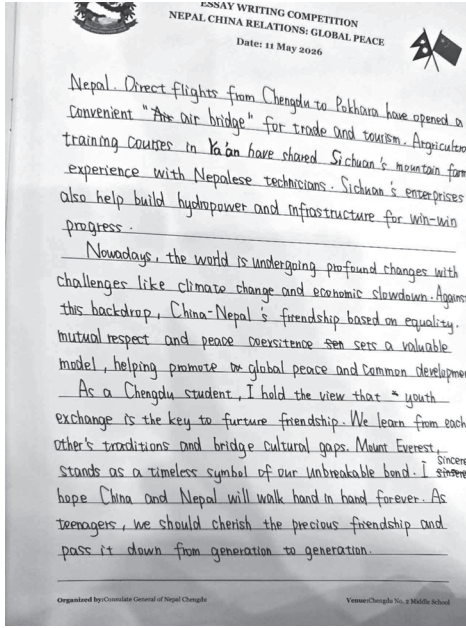 ESSAY WRITING COMPETITION
NEPAL CHINA RELATIONS: GLOBAL PEACE
Date: 11 May 2026
Nepal. Direct flights from Chengdu to Pokhara have opened a
convenient "air bridge" for trade and tourism. Argricultu
training courses in Ya'an have shared Sichuan's mountain farm
experience with Nepalese technicians. Sichuan's enterprises
also help build hydropower and infrastructure for win-win
progress.
Nowadays, the world is undergoing profound changes with
challenges like climate change and economic slowdown. Agains
this backdrop, China-Nepal's friendship based on equality.
mutual respect and peace coexsitence sets a valuable
model, helping promote global peace and common developme
As a Chengdu student, I hold the view that youth
exchange is the key to furture friendship. We learn from each
other's traditions and bridge cultural gaps. Mount Everest,
stands as a timeless symbol of our unbreakable bond. I Sincere
hope China and Nepal will walk hand in hand forever. As
teenagers, we should cherish the precious friendship and
pass it down from generation to generation.
Organized by:Consulate General of Nepal Chengdu
Venue:Chengdu No. 2 Middle School